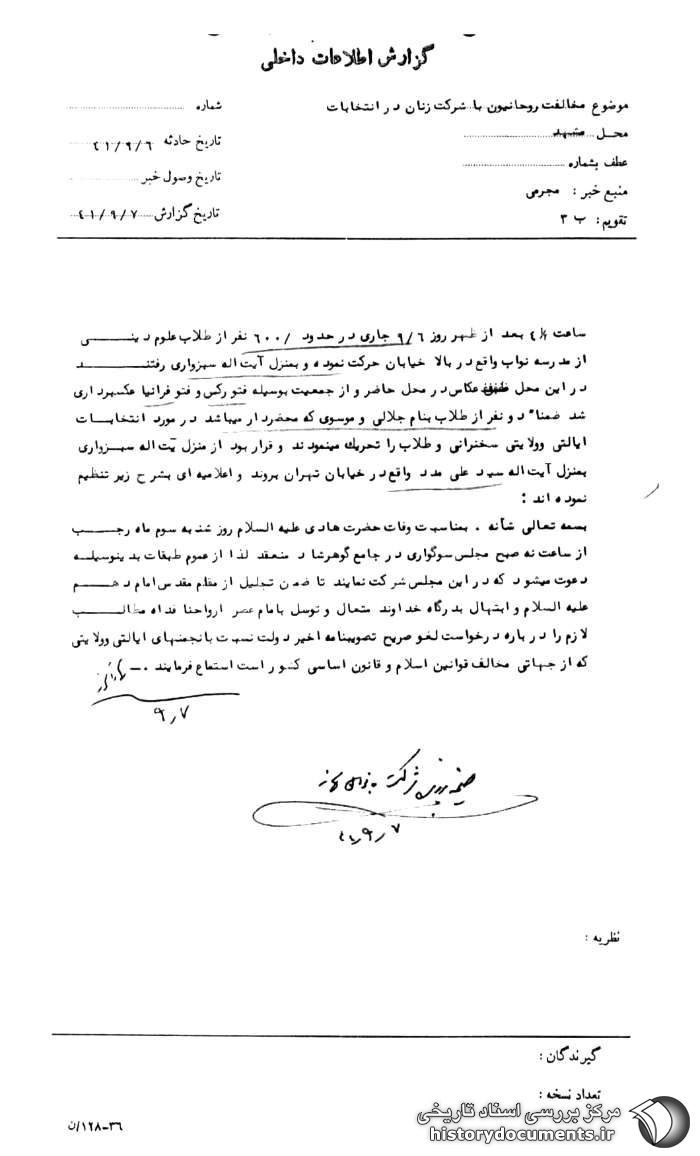 گزارش اطلاعات داخلی
موضوع مخالفت روحانیون با شرکت زنان در انتخابات
شماره
محل مشهد
تاریخ حادثه ٤١/٩/٦
عطف بشماره
تاریخ وصول خبر
منبع خبر : مجرمی
تاریخ گزارش ٤١/٩/٧
تقویم : ب ۳
ساعت ٤½ بعد از ظهر روز ٩/٦ جاری در حدود ٦٠٠/ نفر از طلاب علوم دینی
از مدرسه نواب واقع در بالا خیابان حرکت نموده و بمنزل آیت اله سبزواری رفتند
در این محل عکاس در محل حاضر و از جمعیت بوسیله فتو رکس و فتو فرانیا عکسبرداری
شد ضمنا" دو نفر از طلاب بنام جلالی و موسوی که محضردار میباشد در مورد انتخابات
ایالتی وولایتی سخنرانی و طلاب را تحریک مینمودند و قرار بود از منزل آیت اله سبزواری
بمنزل آیت اله سید علی مدد واقع در خیابان تهران بروند و اعلامیه ای بشرح زیر تنظیم
نموده اند :
بسمه تعالی شأنه . بمناسبت وفات حضرت هادی علیه السلام روز شنبه سوم ماه رجب
از ساعت نه صبح مجلس سوگواری در جامع گوهرشاد منعقد لذا از عموم طبقات بدینوسیله
دعوت میشود که در این مجلس شرکت نمایند تا ضمن تجلیل از مقام مقدس امام دهم
علیه السلام و ابتهال بدرگاه خداوند متعال و توسل بامام عصر ارواحنا فداه مطالب
لازم را درباره درخواست لغو صریح تصویبنامه اخیر دولت نسبت بانجمنهای ایالتی وولایتی
که از جهاتی مخالف قوانین اسلام و قانون اساسی کشور است استماع فرمایند .ـ
٩/٧
٤١/٩/٧
نظریه :
گیرندگان :
تعداد نسخه :
۳٦-۱۲۸/ن
مرکز بررسی اسناد تاریخی
historydocuments.ir